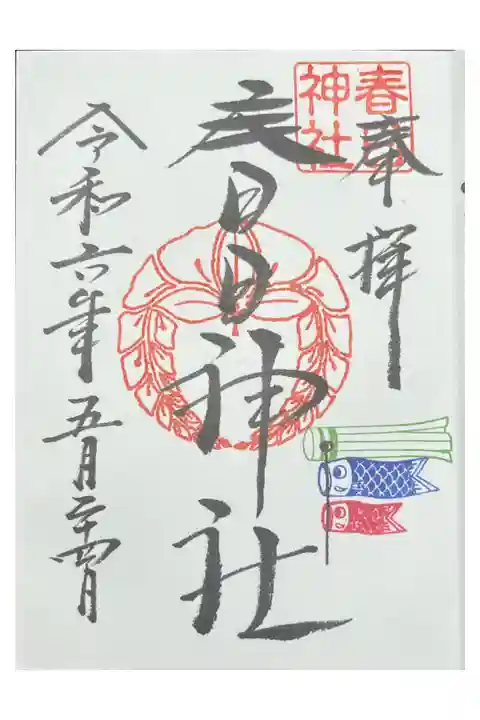 奉拝
春日神社
春日神社
令和六年五月二十四日